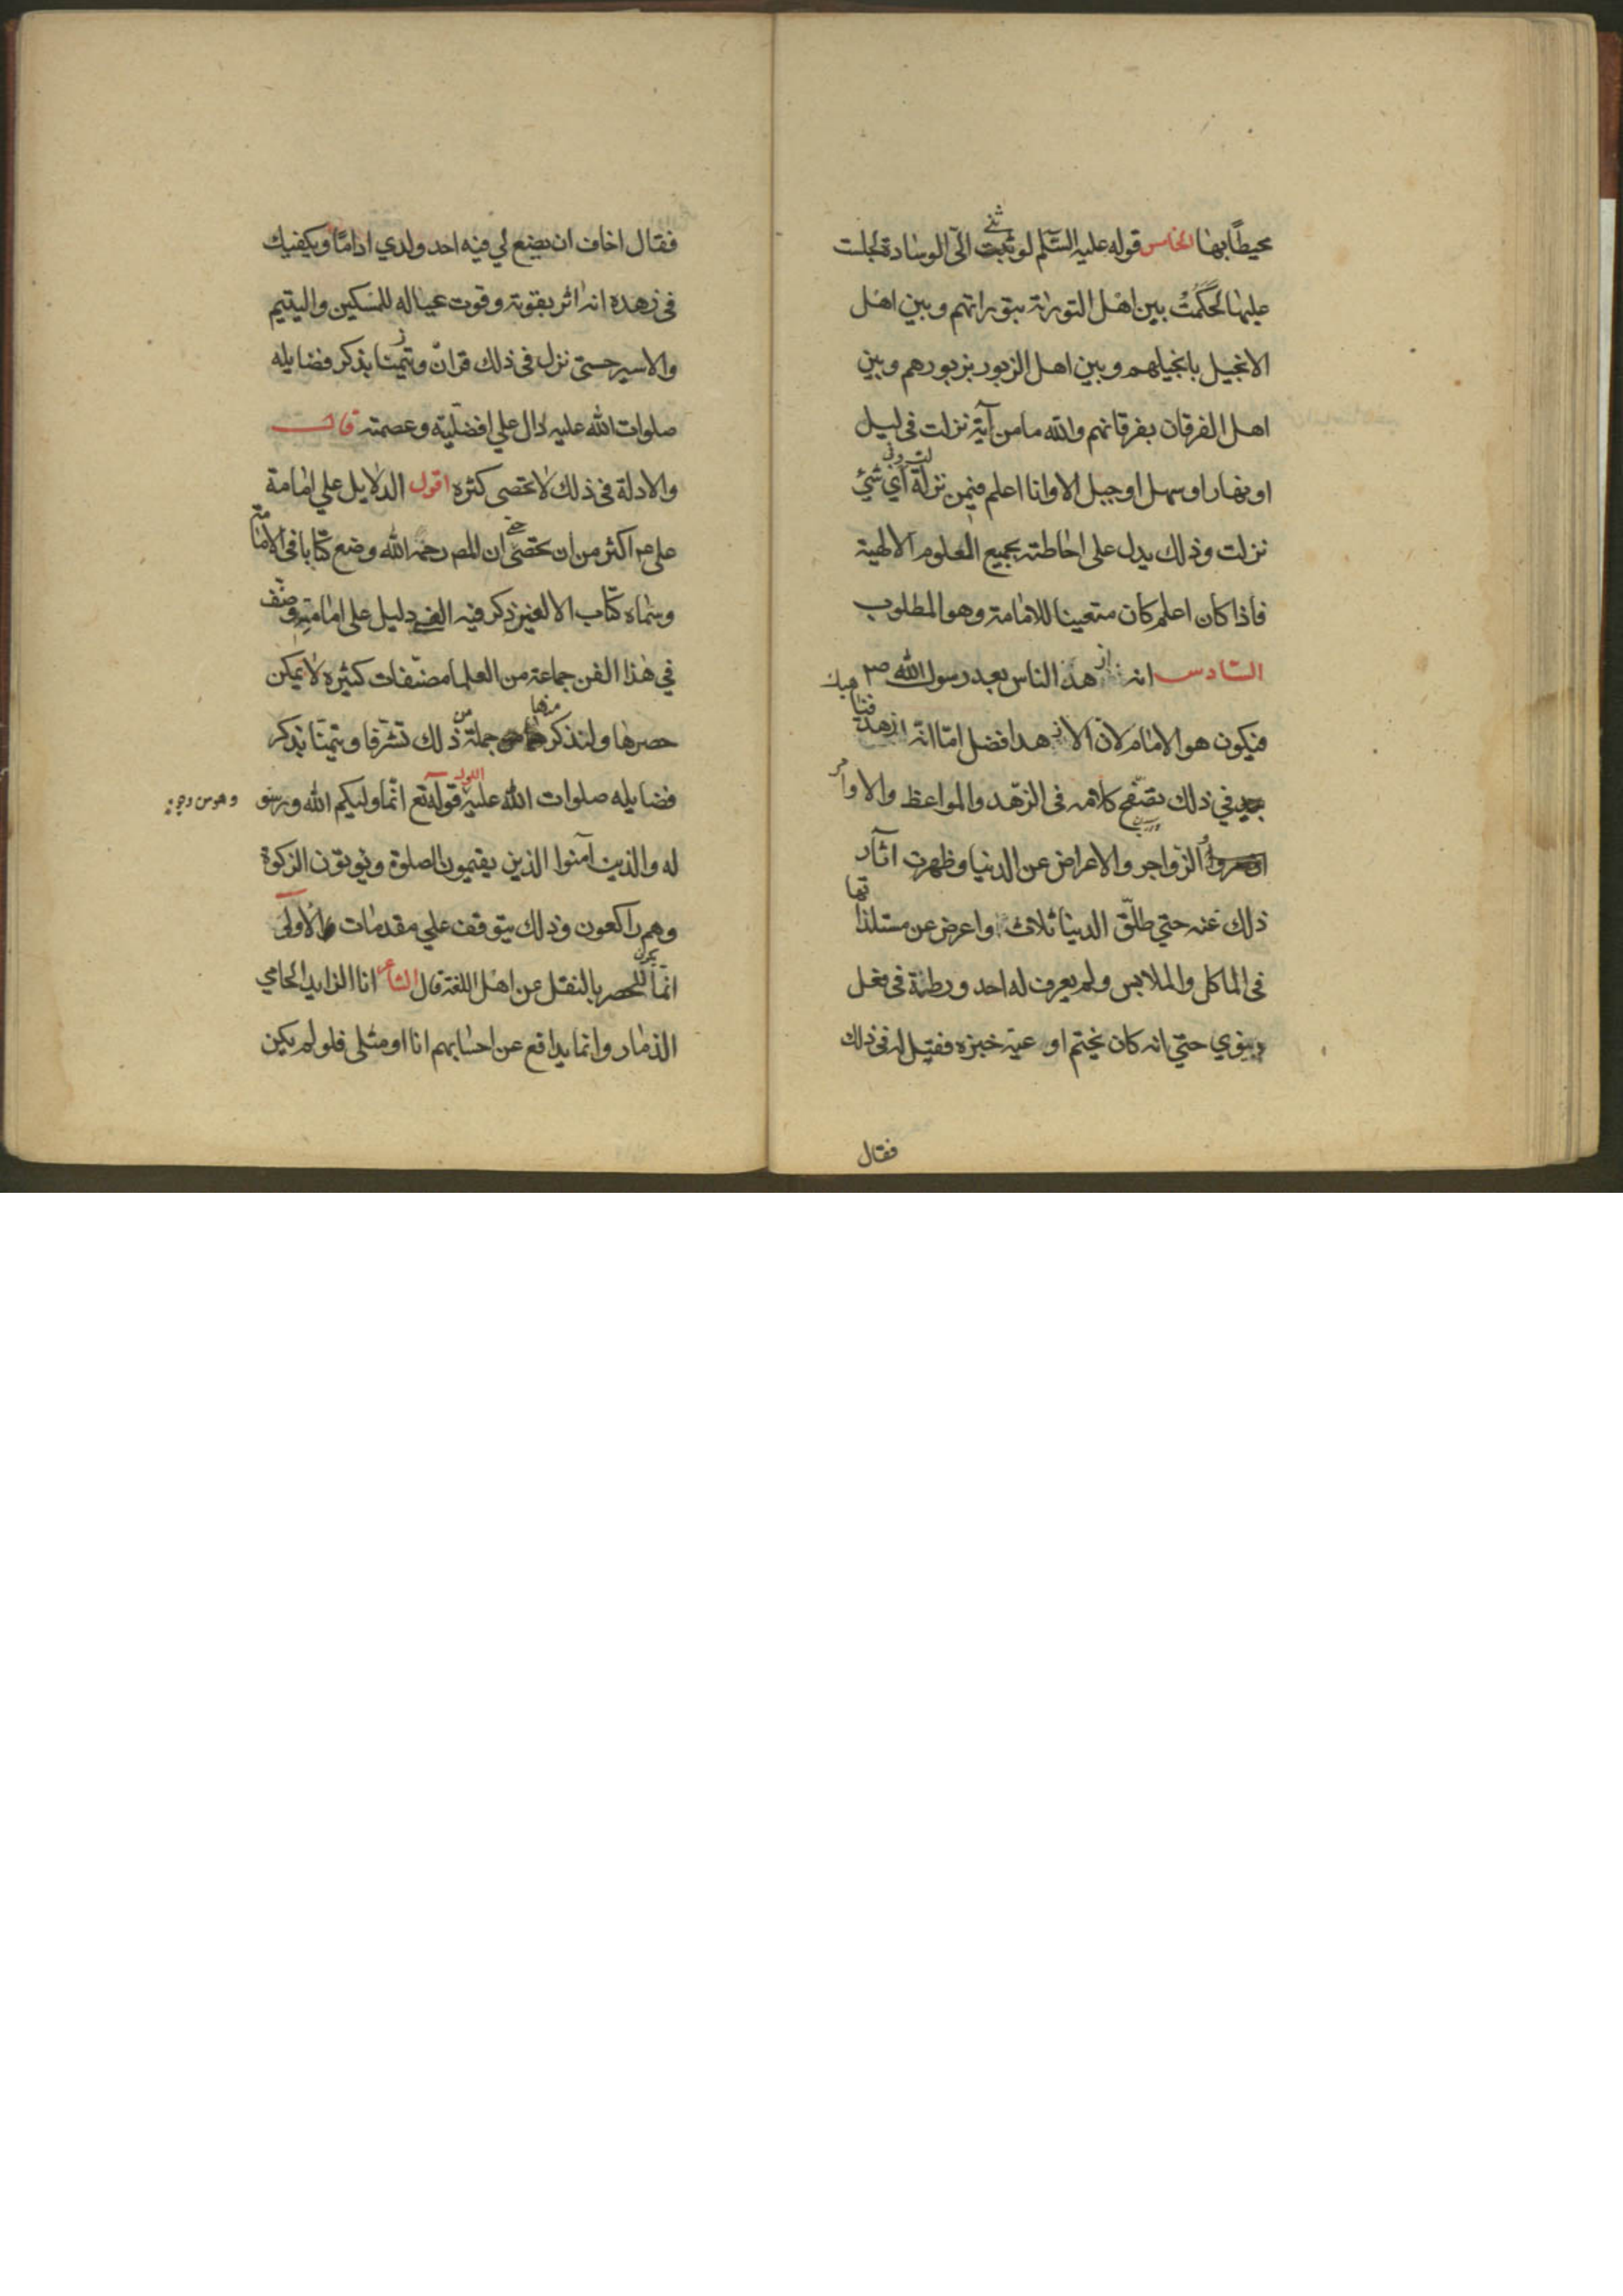 محيطًا بها الخامس قوله عليه السّلم لو ثنيت الىّ الوسادة لجلست
عليها لحكمتُ بين اهل التورٰة بتوراتهم وبين اهل
الانجيل بانجيلهم وبين اهل الزبور بزبورهم وبين
اهل الفرقان بفرقانهم والله ما من آية نزلت فى ليل
او نهار او سهل او جبل الا وانا اعلم فيمن نزلت وفى أي شئ
نزلت وذلك يدل على احاطته بجميع العلوم الالهية
فاذا كان اعلم كان متعينا للامامة وهو المطلوب
السّادس انه ازهد الناس بعد رسول الله ص
فيكون هو الامام لان الازهد افضل امّا انّه ازهد فناهيك
في ذلك تصفّح كلامه فى الزّهد والمواعظ والاوامر
والزّواجر والاعراض عن الدنيا وظهرت اثآر
ذلك عنه حتي طلّق الدنيا ثلاثا واعرض عن مستلذاتها
فى الماكل والملابس ولم يعرف له احد ورطة فى فعل
دنيوي حتّي انه كان يختم اوعية خبزه فقيل له فى ذلك
فقال
فقال اخاف ان يضع لي فيه احد ولدي ادامًا ويكفيك
فى زهده انه اثر بقوته وقوت عياله للمسكين واليتيم
والاسير حتى نزل فى ذلك قران وتيمنا بذكر فضايله
صلوات الله عليه دال علي افضليّته وعصمته قال
والادلة فى ذلك لا تحصى كثرة اقول الدلايل علي امامة
على ع اكثر من ان تحصى حتى ان المص رحمه الله وضع كتابا فى الامامة
وسماه كتاب الالفين ذكر فيه الفى دليل على امامته وصنّف
في هذا الفن جماعة من العلما مصنّفات كثيرة لا يمكن
حصرها ولنذكر منها جملة من ذلك تشرّفا وتيمّنا بذكر
فضايله صلوات الله عليه الاول قوله تع انّما وليكم الله ورسو وهو من وجوه
له والذين آمنوا الذين يقيمون الصلوة ويوتون الزكوة
وهم راكعون وذلك يتوقف علي مقدمات الاولى
انّما للحصر بالنقل عن اهل اللغة قال الشاعر انا الذايد الحامي
الذمار وانما يدافع عن احسابهم انا او مثلى فلو لم يكن